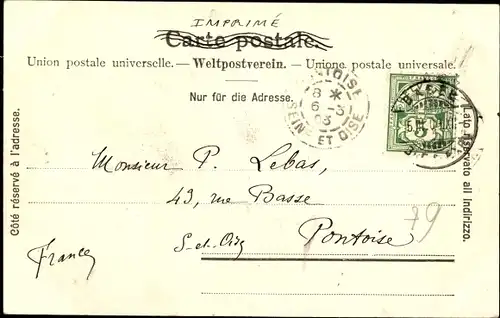 IMPRIMÉ
Carte postale.
Union postale universelle. — Weltpostverein. — Unione postale universale.
Nur für die Adresse.
PONTOISE
8 *
6 -3
03
SEINE ET OISE
5
Côté réservé à l'adresse.
Lato riservato all indirizzo.
Monsieur P. Lebas,
43, rue Basse
79
S-et-Oise
Pontoise
France